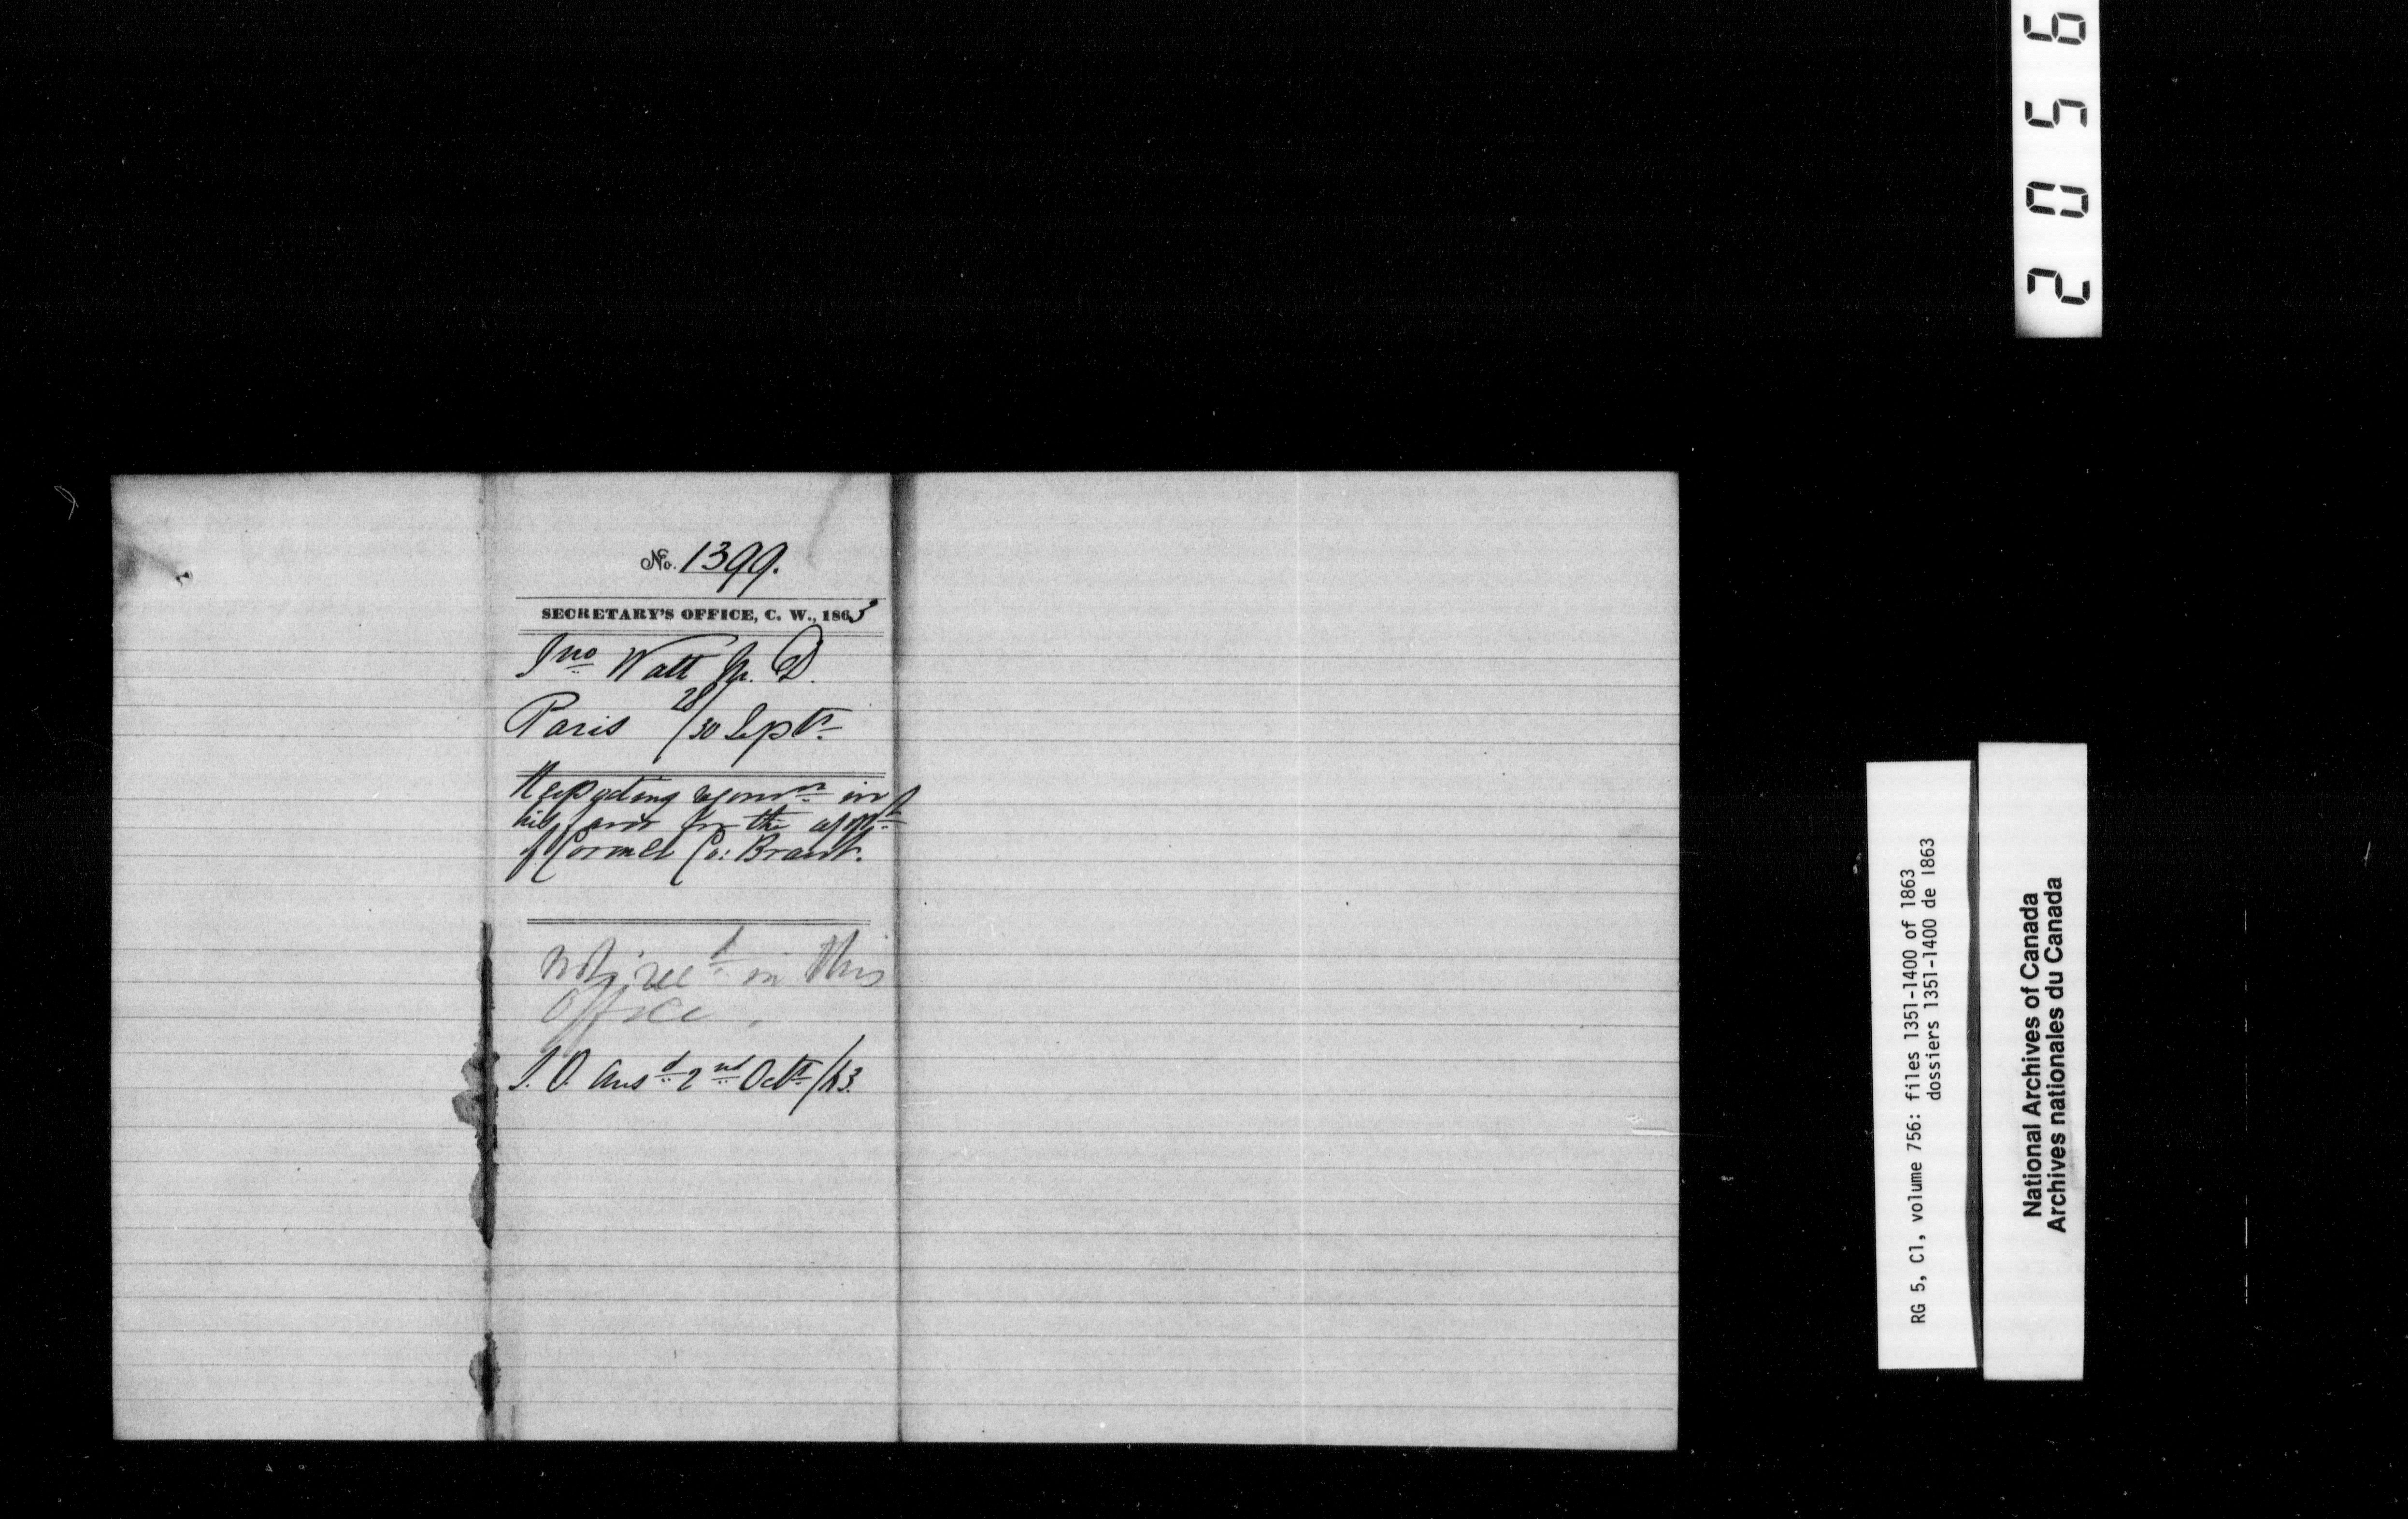 No. 1399.
SECRETARY'S OFFICE, C. W., 1863
Jno Watt M. D.
Paris 28/30 Septr
Respecting in
his favor for the appt
of Coroner Co: Brant.
Not recd in this
Office.
Ansd 2nd Octr /63.
2056
RG 5, C1, volume 756: files 1351-1400 of 1863
dossiers 1351-1400 de 1863
National Archives of Canada
Archives nationales du Canada